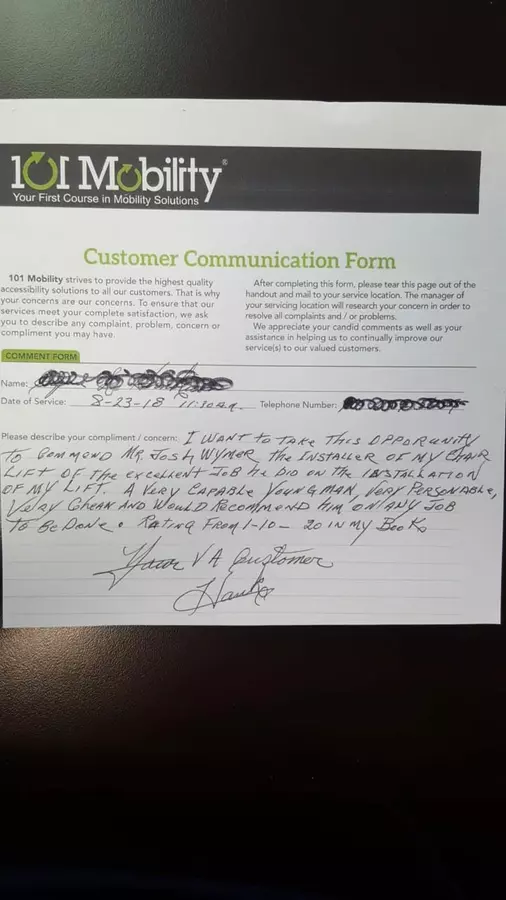 101 Mobility®
Your First Course in Mobility Solutions
Customer Communication Form
101 Mobility strives to provide the highest quality
accessibility solutions to all our customers. That is why
your concerns are our concerns. To ensure that our
services meet your complete satisfaction, we ask
you to describe any complaint, problem, concern or
compliment you may have.
After completing this form, please tear this page out of the
handout and mail to your service location. The manager of
your servicing location will research your concern in order to
resolve all complaints and / or problems.
We appreciate your candid comments as well as your
assistance in helping us to continually improve our
service(s) to our valued customers.
COMMENT FORM
Name:
Date of Service: 8-23-18 11:30 A.M.
Telephone Number:
Please describe your compliment / concern: I WANT TO TAKE THIS OPPORUNITY
TO COMMEND MR. JOSH WYMER THE INSTALLER OF MY CHAIR
LIFT OF THE EXCELLENT JOB HE DID ON THE INSTALLATION
OF MY LIFT. A VERY CAPABLE YOUNG MAN, VERY PERSONABLE,
VERY CLEAN AND WOULD RECOMMEND HIM ON ANY JOB
TO BE DONE. RATING FROM 1-10 - 20 IN MY BOOK
Your VA Customer
Hank